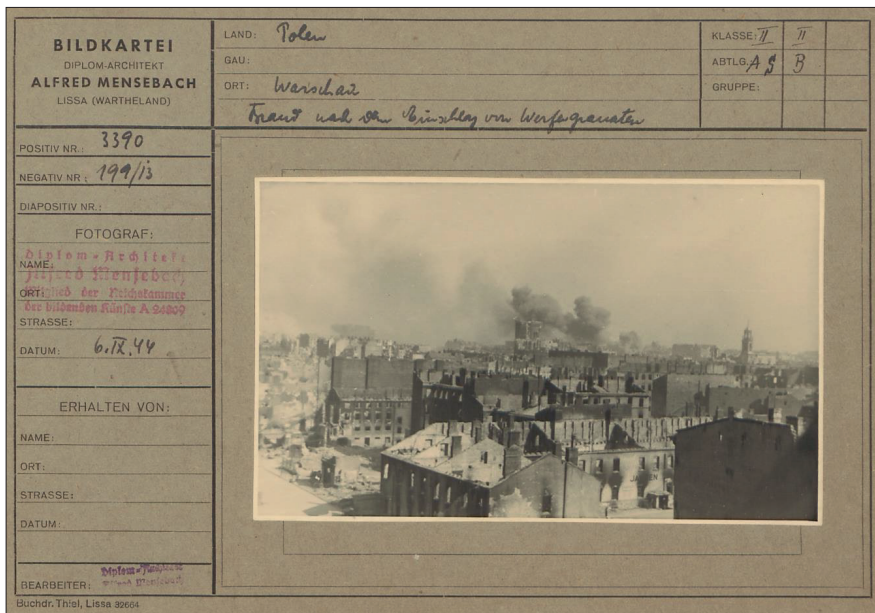 BILDKARTEI
DIPLOM-ARCHITEKT
ALFRED MENSEBACH
LISSA (WARTHELAND)
LAND: Polen
GAU:
ORT: Warschau
Brand nach dem Einschlag von Werfergranaten
KLASSE: II II
ABTLG.: A S B
GRUPPE:
POSITIV NR.: 3390
NEGATIV NR.: 199/13
DIAPOSITIV NR.:
FOTOGRAF:
Diplom-Architekt
Alfred Mensebach
Mitglied der Reichskammer
der bildenden Künste A 24809
NAME:
ORT:
STRASSE:
DATUM: 6.IX.44
ERHALTEN VON:
NAME:
ORT:
STRASSE:
DATUM:
BEARBEITER: Diplom-Architekt
Alfred Mensebach
Buchdr. Thiel, Lissa 32664